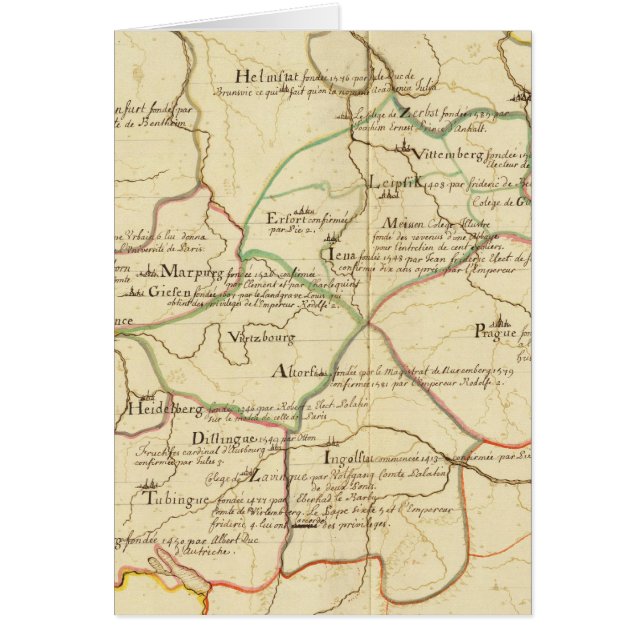 Helmstat fondée 1576 par Jule Duc de
Brunsvic ce qui a fait qu'on la nomme Academia Julia
Le College de Zerbst fondée 1582 par
Joachim Ernest Prince d'Anhalt.
nfurt fondée par
té de Bentheim
Vittemberg fondée 150
Electeur de
Leipsik 1408 par frideric de
Colege de
Erfort confirmée
par Pie 2.
Meissen College Illustre
fondé des revenus d'une Abbaye
pour l'entretien de cent Ecoliers.
ue Urbain 6 lui donna
l'Université de Paris.
Iena fondée 1548 par Jean frideric Elect. de
confirmée dix ans après par l'Empereur
Marpurg fondée 1526 confirmée
par Clement et par Charlequint
Giesen fondée 1607 par le Landgrave Louis qui
obtint des privileges de l'Empereur Rodolfe 2.
nce
Virtzbourg
Prague fon
Altorf fondée par le Magistrat de Nuremberg 1579
confirmée 1581 par l'Empereur Rodolfe 2.
Heidelberg fondée 1346 par Robert 2 Elect. Palatin
sur le modele de celle de Paris
Dillingue 1549 par Otton
Truchses cardinal d'Ausbourg
confirmée par Jules 3
Ingolstat commencée 1413 confirmée par
Colege de Lavingue par Wolfgang Comte Palatin
de deux Ponts.
Tubingue fondée 1477 par Eberhad le Barbu
Comte de Wirtemberg. Le Pape Sixte 5 et l'Empereur
frideric 4. lui ont accordé des privileges.
g fondée 1450 par Albert Duc
d'Autriche.